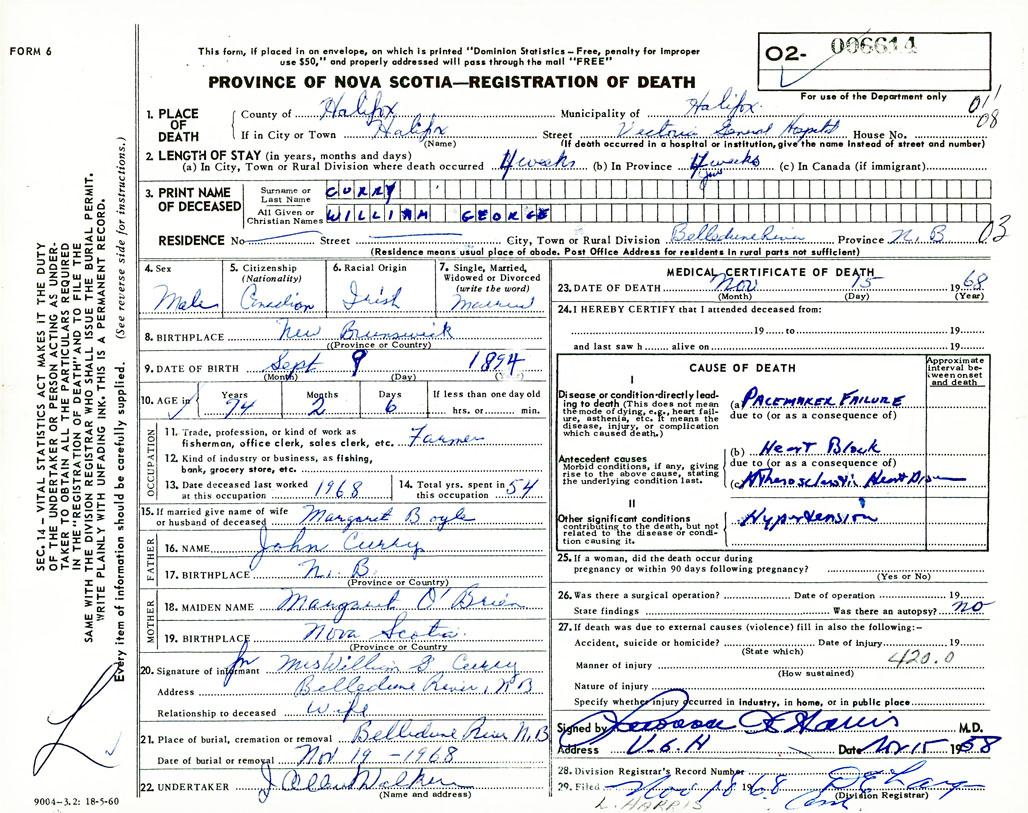 FORM 6
This form, if placed in an envelope, on which is printed "Dominion Statistics – Free, penalty for improper
use $50," and properly addressed will pass through the mail "FREE"
PROVINCE OF NOVA SCOTIA—REGISTRATION OF DEATH
O2- 006614
For use of the Department only
011
08
1. PLACE OF DEATH
County of Halifax Municipality of Halifax
If in City or Town Halifax Street Victoria General Hospital House No.
(Name) (If death occurred in a hospital or institution, give the name instead of street and number)
2. LENGTH OF STAY (in years, months and days)
(a) In City, Town or Rural Division where death occurred 4 weeks (b) In Province 4 weeks (c) In Canada (if immigrant)
3. PRINT NAME OF DECEASED
Surname or Last Name CURRY
All Given or Christian Names WILLIAM GEORGE
RESIDENCE No Street City, Town or Rural Division Belledune River Province N.B 03
(Residence means usual place of abode. Post Office Address for residents in rural parts not sufficient)
4. Sex Male
5. Citizenship (Nationality) Canadian
6. Racial Origin Irish
7. Single, Married, Widowed or Divorced (write the word) Married
8. BIRTHPLACE New Brunswick
((Province or Country)
9. DATE OF BIRTH Sept 9 1894
(Month) (Day)
10. AGE in Years 74 Months 2 Days 6 If less than one day old
hrs. or min.
OCCUPATION
11. Trade, profession, or kind of work as
fisherman, office clerk, sales clerk, etc. Farmer
12. Kind of industry or business, as fishing,
bank, grocery store, etc.
13. Date deceased last worked
at this occupation 1968
14. Total yrs. spent in
this occupation 54
15. If married give name of wife
or husband of deceased Margaret Boyle
FATHER
16. NAME John Curry
17. BIRTHPLACE N.B.
(Province or Country)
MOTHER
18. MAIDEN NAME Margaret O'Brien
19. BIRTHPLACE Nova Scotia
(Province or Country
20. Signature of informant Mrs William G Curry
Address Belledune River, N B
Relationship to deceased Wife
21. Place of burial, cremation or removal Belledune River N.B
Date of burial or removal Nov 19 - 1968
22. UNDERTAKER J Allen Walker
(Name and address)
9004–3.2: 18-5-60
MEDICAL CERTIFICATE OF DEATH
23. DATE OF DEATH Nov 15 1968
(Month) (Day) (Year)
24. I HEREBY CERTIFY that I attended deceased from:
19 to 19
and last saw h alive on 19
CAUSE OF DEATH
Approximate interval between onset and death
I
Disease or condition directly leading
to death (This does not mean
the mode of dying, e.g., heart failure,
asthenia, etc. It means the
disease, injury, or complication
which caused death.)
(a) PACEMAKER FAILURE
due to (or as a consequence of)
Antecedent causes
Morbid conditions, if any, giving
rise to the above cause, stating
the underlying condition last.
(b) Heart Block
due to (or as a consequence of)
(c) Atherosclerotic Heart
II
Other significant conditions
contributing to the death, but not
related to the disease or condition
causing it.
Hypertension
25. If a woman, did the death occur during
pregnancy or within 90 days following pregnancy?
(Yes or No)
26. Was there a surgical operation? Date of operation 19
State findings Was there an autopsy? NO
27. If death was due to external causes (violence) fill in also the following:–
Accident, suicide or homicide? Date of injury 19
(State which) 420.0
Manner of injury
(How sustained)
Nature of injury
Specify whether injury occurred in industry, in home, or in public place
Signed by Harris M.D.
Address V.G.H Date Nov 15 19
28. Division Registrar's Record Number
29. Filed Nov 18 1968
(Division Registrar)
L. HARRIS
SEC. 14 – VITAL STATISTICS ACT MAKES IT THE DUTY
OF THE UNDERTAKER OR PERSON ACTING AS UNDERTAKER
TO OBTAIN ALL THE PARTICULARS REQUIRED
IN THE "REGISTRATION OF DEATH" AND TO FILE THE
SAME WITH THE DIVISION REGISTRAR WHO SHALL ISSUE THE BURIAL PERMIT.
WRITE PLAINLY WITH UNFADING INK. THIS IS A PERMANENT RECORD.
Every item of information should be carefully supplied. (See reverse side for instructions.)